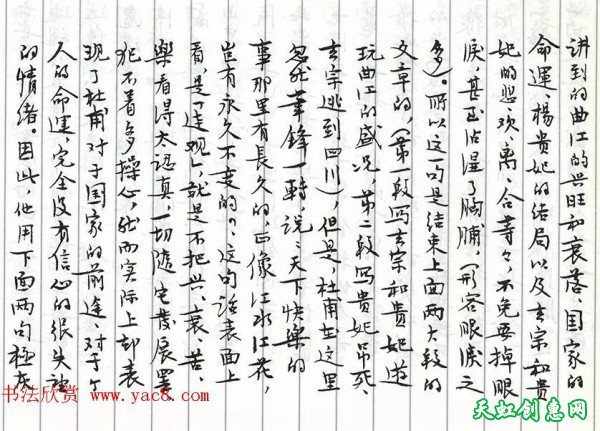 讲到的曲江的兴旺和衰落、国家的
命運、楊贵妃的结局以及玄宗和贵
妃的悲欢、离、合等々,不免要掉眼
淚,甚至沾湿了胸脯,(形容眼淚之
多)。所以这一句是结束上面两大段的
文章的,(第一段写玄宗和贵妃遊
玩曲江的盛况,第二段写贵妃吊死、
玄宗逃到四川),但是,杜甫在这里
忽然筆锋一轉,说:天下快樂的
事那里有長久的,正像江水江花,
豈有永久不变的?,这句话表面上
看是「達观」,就是不把兴、衰、苦、
樂看得太認真,一切随它發展
犯不着多操心,然而实际上却表
现了杜甫对于国家的前途、对于个
人的命運,完全没有信心的很失望
的情绪。因此,他用下面两句極灰
书法欣赏 www.yac8.com
天虹创意网